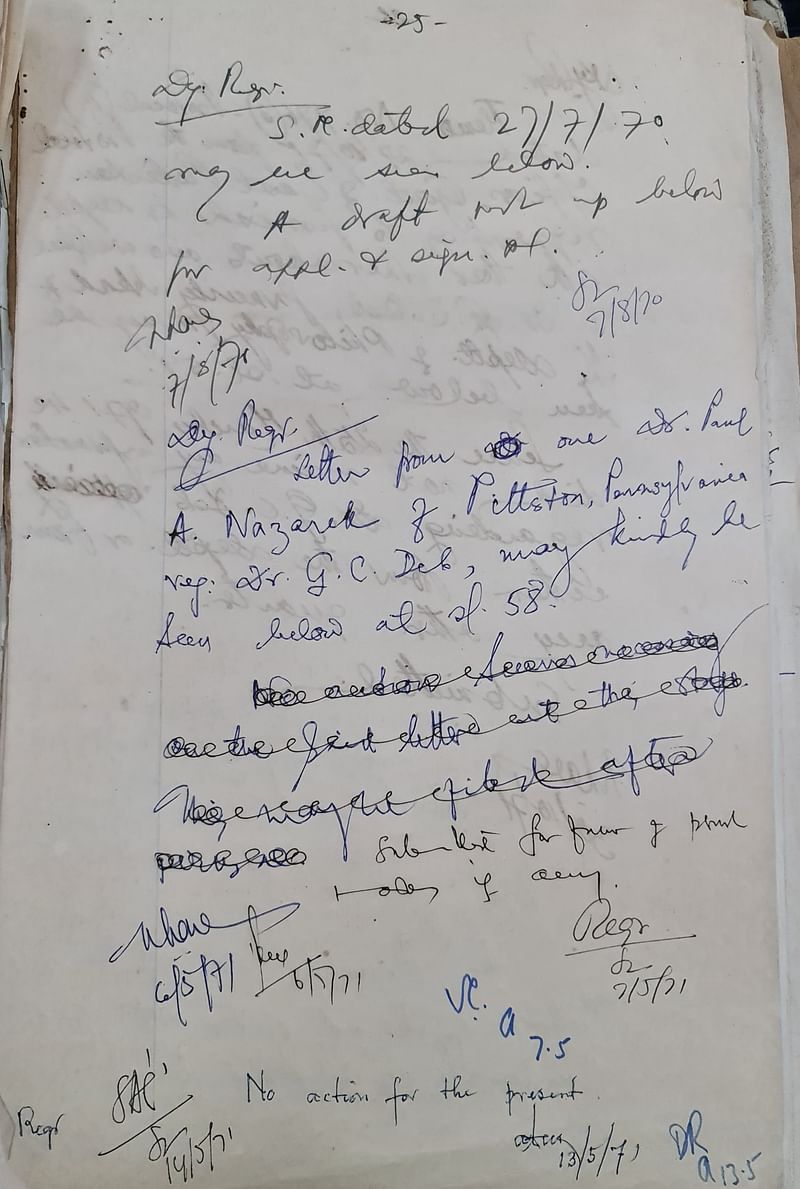 -25-
Dy. Regr.
S. R. dated 27/7/70
may be seen below.
A draft put up below
for appl. & sign. pl.
7/8/70
7/8/71
Dy. Regr.
Letter from one Dr. Paul
A. Nazarek of Pittston, Pennsylvania
reg: Dr. G. C. Deb, may kindly be
seen below at sl. 58.
Submitted for favour of
orders if any.
Regr
6/5/71 6/5/71
7/5/71
VC.
7.5
No action for the present.
Regr
14/5/71
13/5/71
DR
13.5